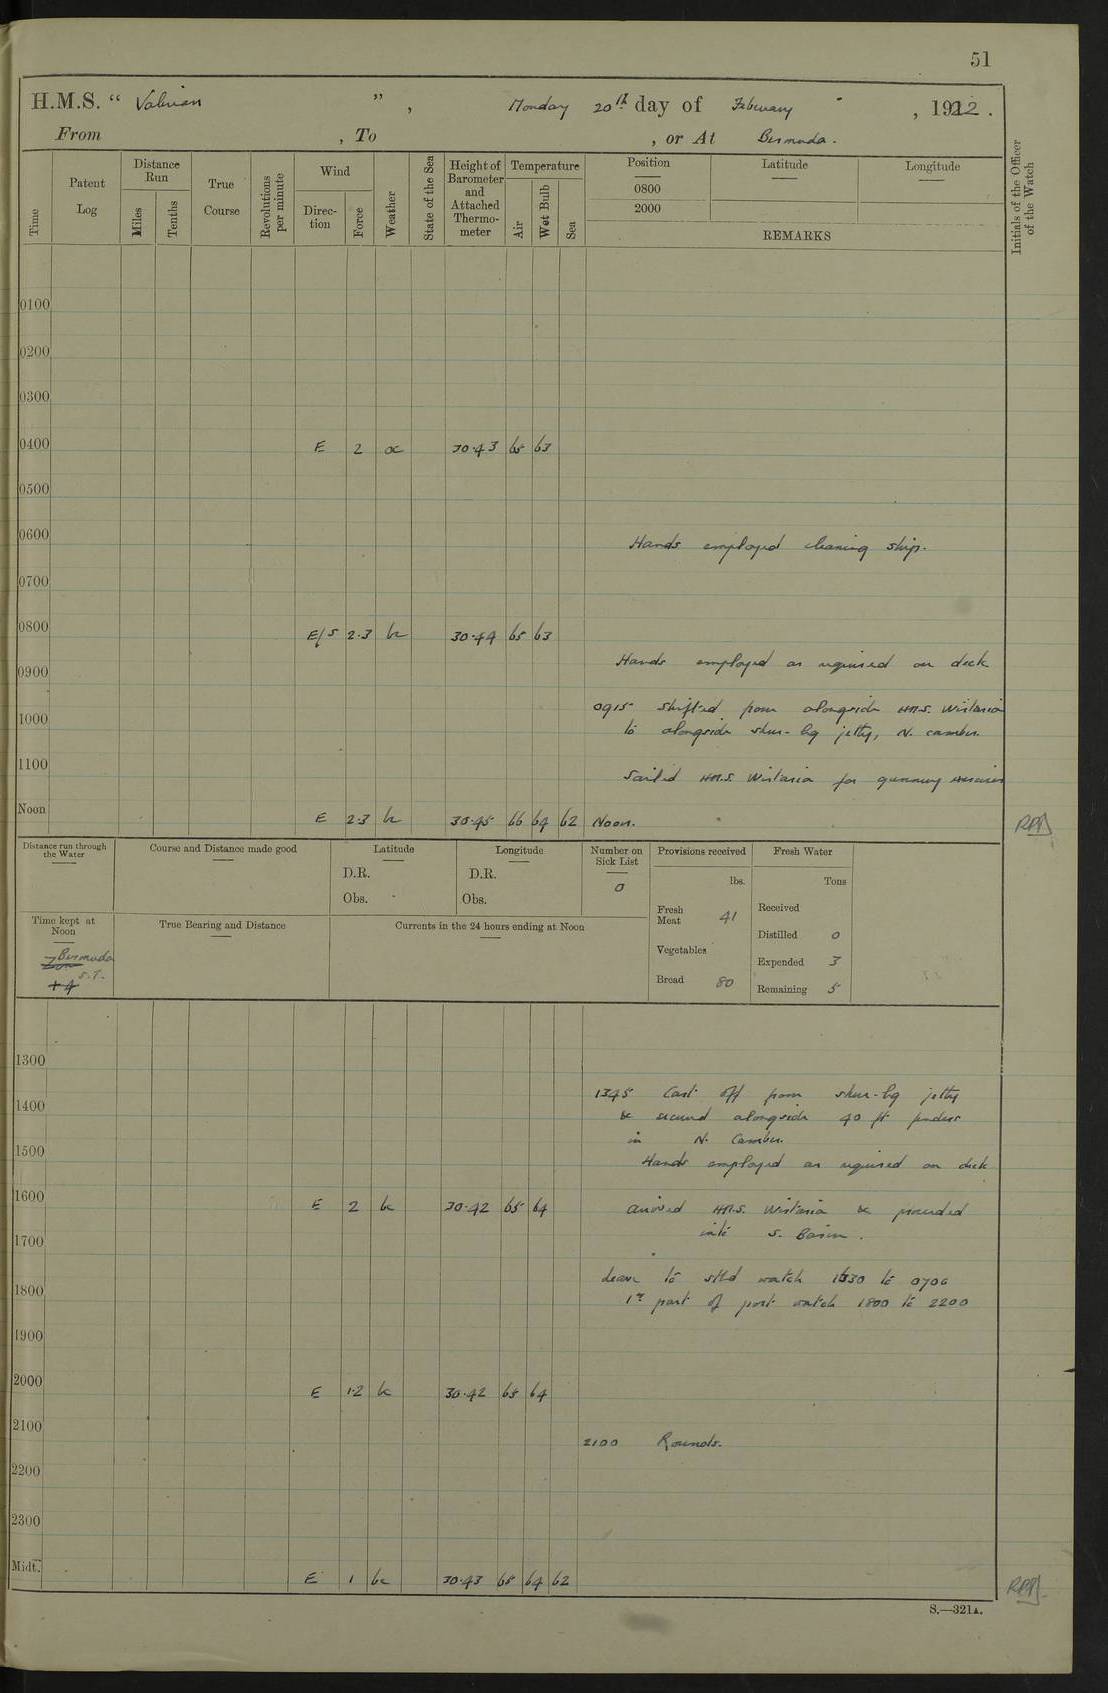 51
H.M.S. “ Valerian ” , Monday 20th day of February , 1922 .
From , To , or At Bermuda .
Time
Patent Log
Distance Run
Miles
Tenths
True Course
Revolutions per minute
Wind
Direc-tion
Force
Weather
State of the Sea
Height of Barometer and Attached Thermo-meter
Temperature
Air
Wet Bulb
Sea
Position
0800
2000
Latitude
Longitude
REMARKS
Initials of the Officer of the Watch
0100
0200
0300
0400 E 2 30·43 65 63
0500
0600 Hands employed cleaning ship.
0700
0800 E/S 2·3 bc 30·44 65 63
Hands employed as required on deck
0900
0915 Shifted from alongside H.M.S. Wistaria
1000 to alongside jetty, N. camber.
1100 Sailed H.M.S. Wistaria for gunnery exercises
Noon E 2·3 bc 30·45 66 64 62 Noon.
Distance run through the Water
Course and Distance made good
Latitude
D.R.
Obs.
Longitude
D.R.
Obs.
Number on Sick List
0
Provisions received
lbs.
Fresh Meat 41
Vegetables
Bread 80
Fresh Water
Tons
Received
Distilled 0
Expended 3
Remaining 5
Time kept at Noon
Bermuda
S.T.
+4
True Bearing and Distance
Currents in the 24 hours ending at Noon
1300
1345 Cast off from jetty
1400 & secured alongside 40 ft
in N. Camber.
1500 Hands employed as required on deck
1600 E 2 bc 30·42 65 64 arrived H.M.S. Wistaria & proceeded
1700 into S. Basin .
Leave to stbd watch 1630 to 0700
1800 1st part of port watch 1800 to 2200
1900
2000 E 1·2 bc 30·42 65 64
2100 2100 Rounds.
2200
2300
Midt. E 1 bc 30·43 65 64 62
S.—321A.